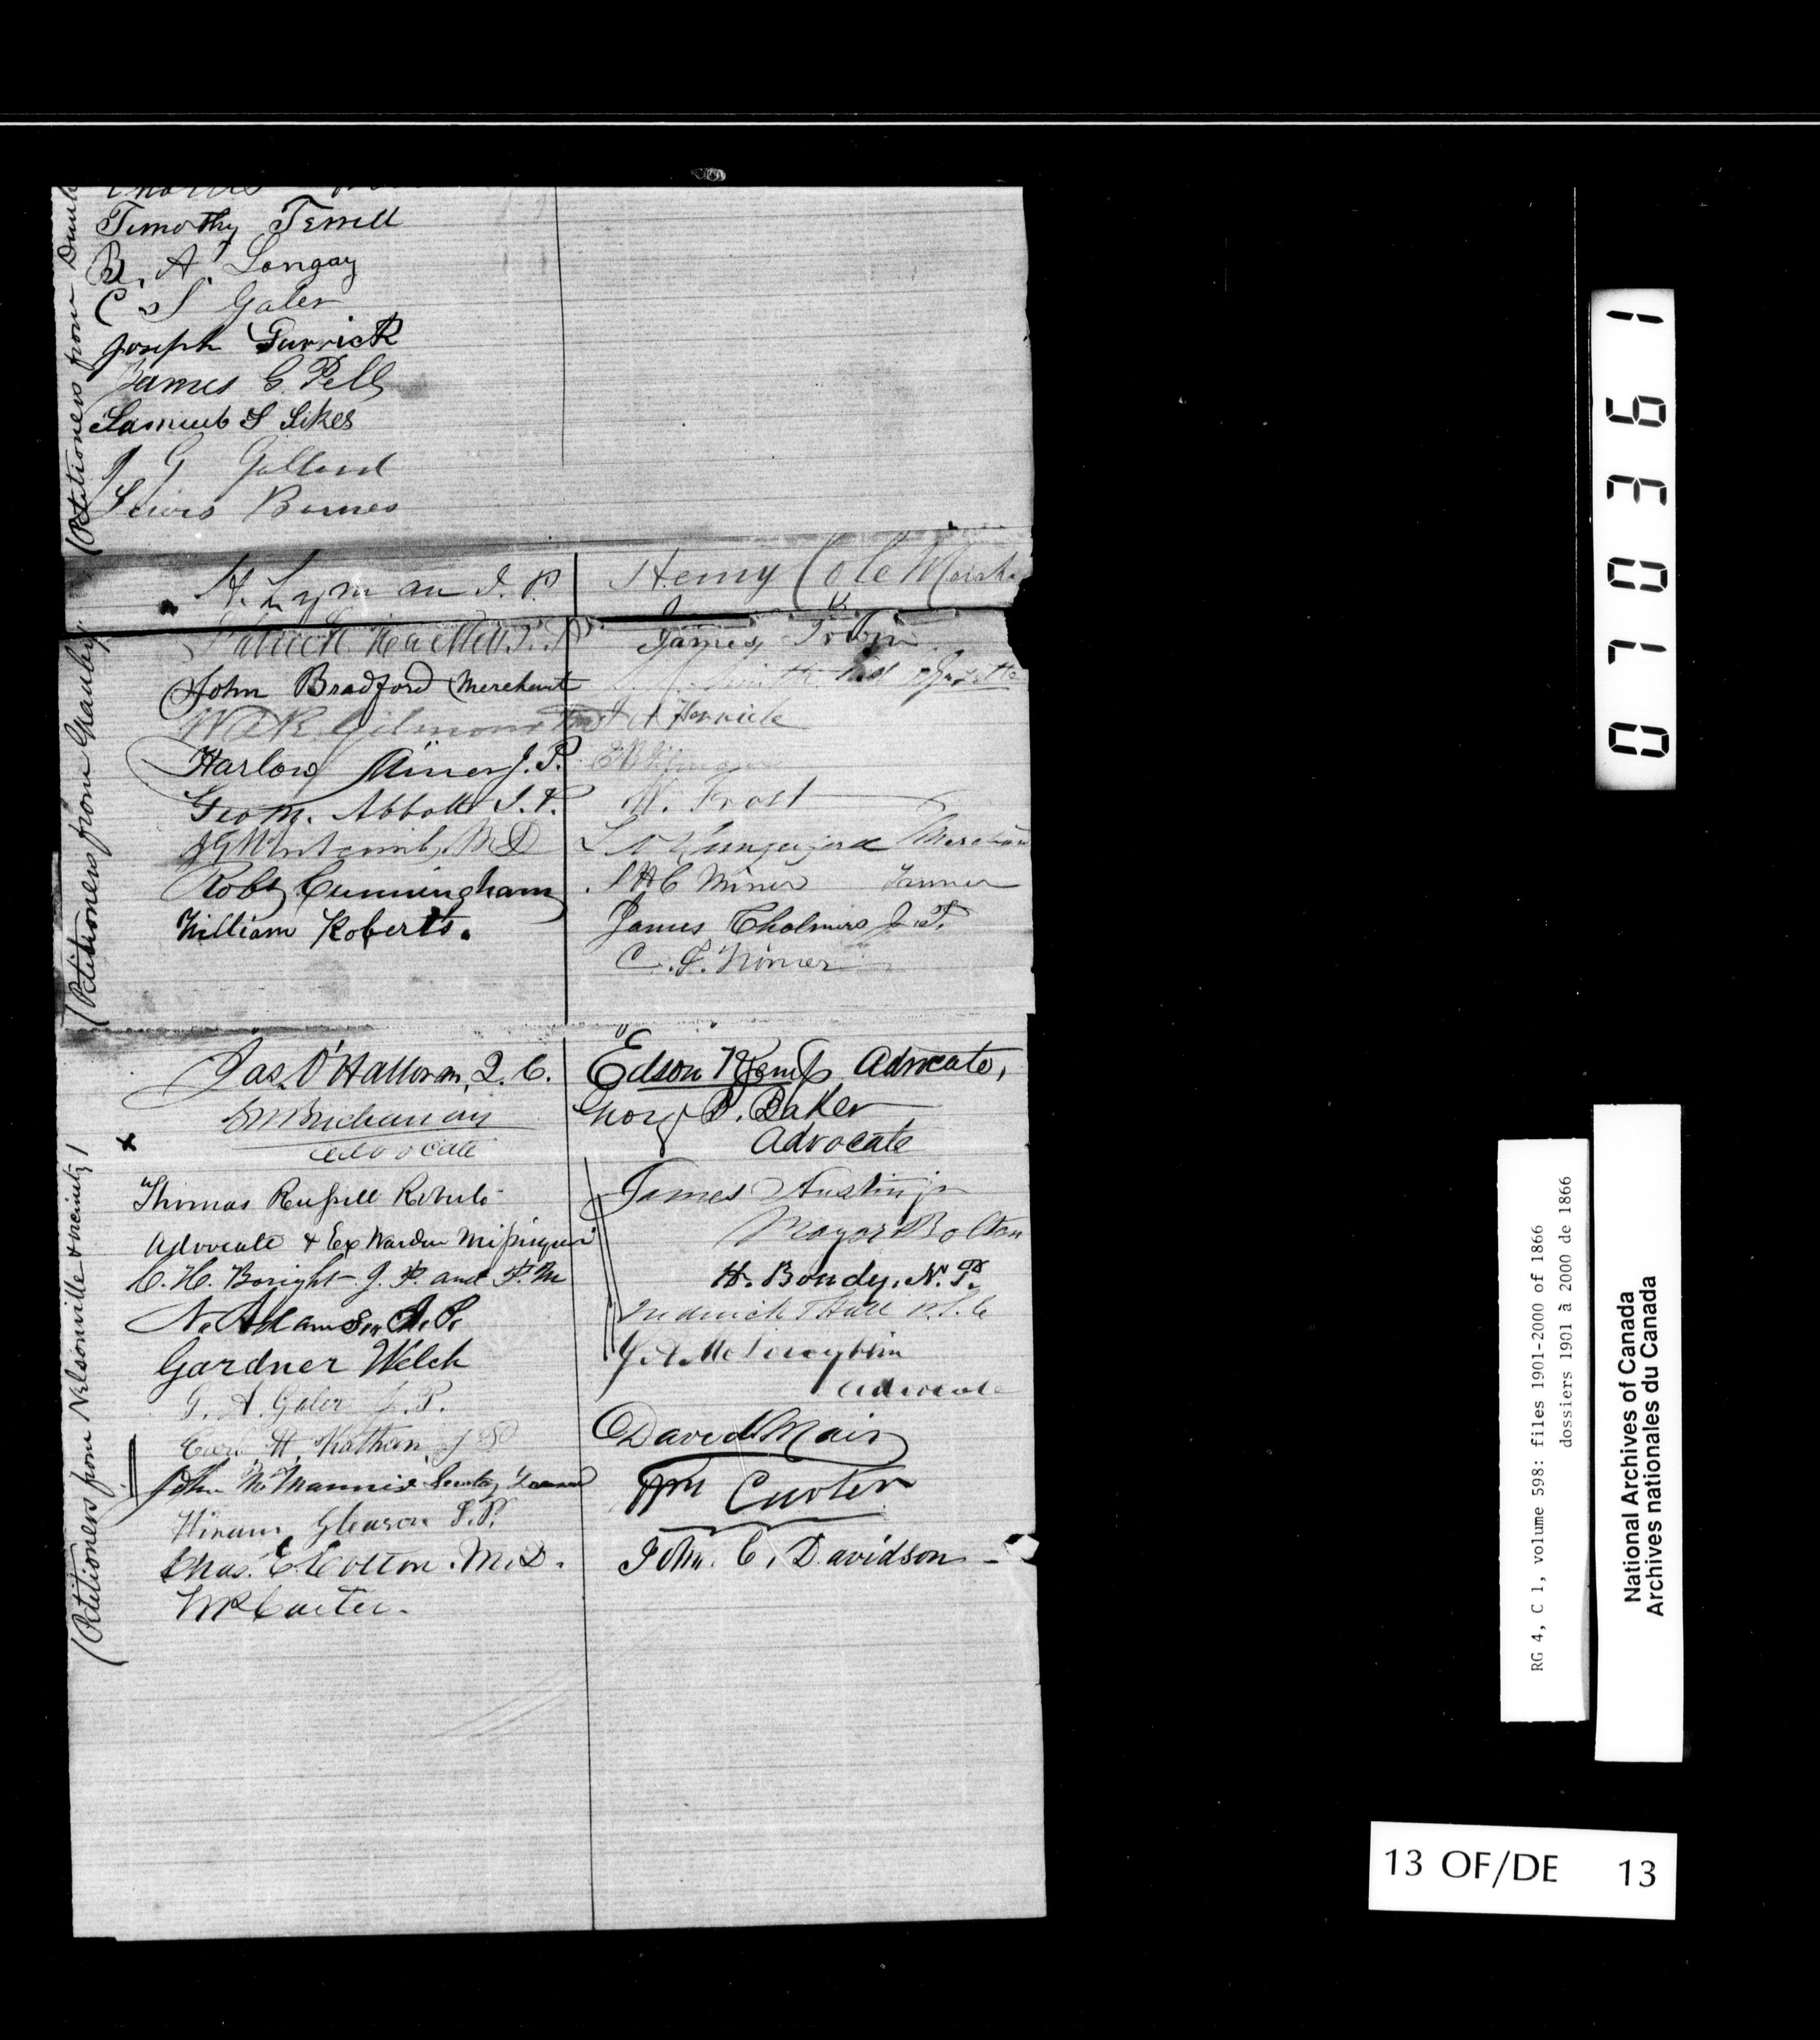 (Petitioners from
Timothy Terrill
B. A. Longay
C. S. Galer
Joseph Garrick
James G. Pell
Samuel S Sikes
J G Gallard
Lewis Barnes
(Petitioners from Granby)
H. Lyman J. P.
Patrick Hackett J. P.
John Bradford Merchant
W. R. Gilmour
Harlow Miner J. P.
Geo M. Abbott J. P.
M D
Robt Cunningham
William Roberts.
Henry Cole
James Irwin
J A Herrick
W. Frost
Merchant
S H C Miner Tanner
James Chalmers J. P.
C. S. Miner
(Petitioners from Nelsonville & vicinity)
Jas. O'Halloran, Q. C.
G M Buchanan
Advocate
Thomas Russell Roberts
Advocate & Ex Warden Missisquoi
C. H. Boright J. P. and P. M
N. Adams Sr. J. P.
Gardner Welch
G. A. Galer J. P.
H. Kathan J P
John McMannis
Hiram Gleason J. P.
Chas. E. Cotton. M. D.
W R Carter.
Edson Kemp Advocate,
George B. Baker
Advocate
James Austin jr
Mayor Bolton
H. Bondy, N. P.
Frederick Hall
Advocate
David Mair
Wm Carter
John C. Davidson
070361
RG 4, C 1, volume 598: files 1901-2000 of 1866
dossiers 1901 à 2000 de 1866
National Archives of Canada
Archives nationales du Canada
13 OF/DE 13